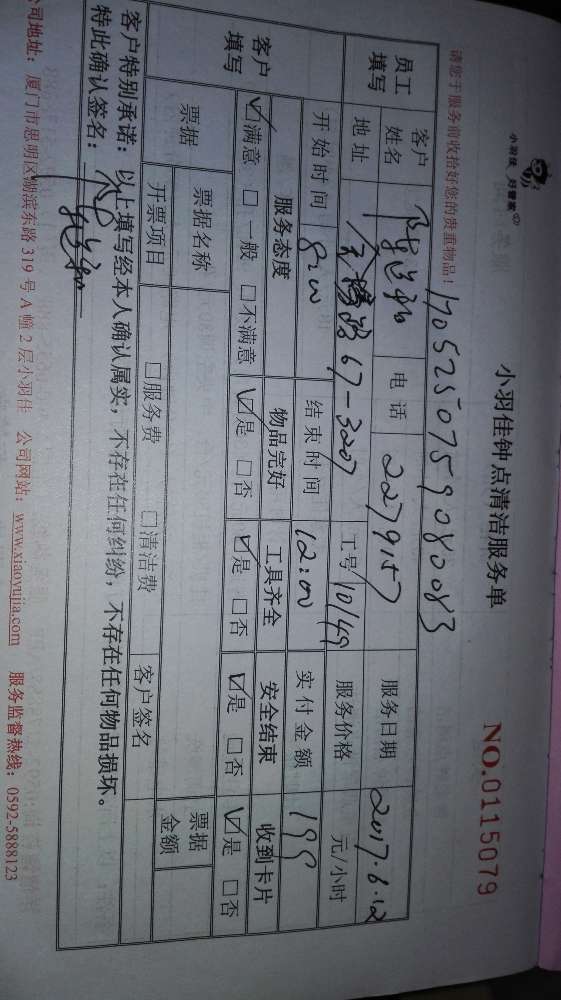 小羽佳 好管家
小羽佳钟点清洁服务单
NO.0115079
请您于服务前收拾好您的贵重物品！
17052507590 8083
员工填写 客户姓名 电话 2279157 服务日期 2017.6.12
地址 67-3207 工号 10149 服务价格 元/小时
客户填写 开始时间 8:00 结束时间 12:00 实付金额 199
服务态度 物品完好 工具齐全 安全结束 收到卡片
☑满意 □一般 □不满意 ☑是 □否 ☑是 □否 ☑是 □否 ☑是 □否
票据 票据名称 票据金额
开票项目 □服务费 □清洁费 客户签名
客户特别承诺：以上填写经本人确认属实，不存在任何纠纷，不存在任何物品损坏。
特此确认签名：
公司地址：厦门市思明区湖滨东路319号A幢2层小羽佳 公司网站：www.xiaoyujia.com 服务监督热线：0592-5888123